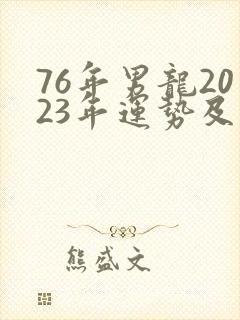 76年男龍20
23年運勢及
熊盛文